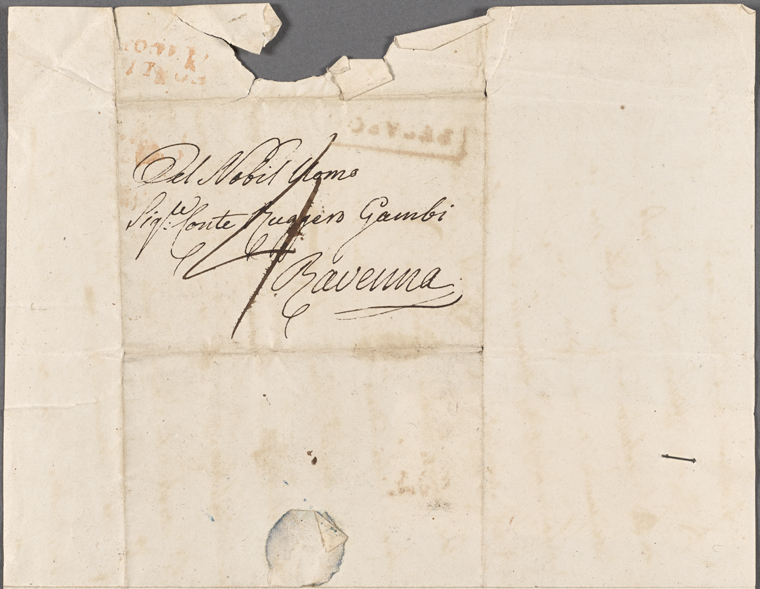 Del Nobil Uomo
Sig.te Conte Ruggero Gambi
Ravenna